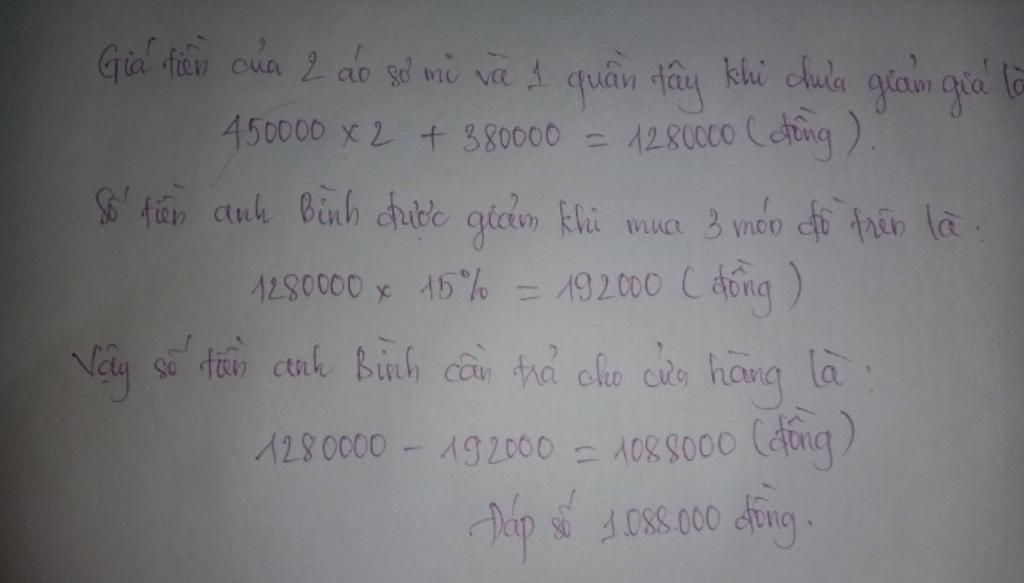 Giá tiền của 2 áo sơ mi và 1 quần tây khi chưa giảm giá là
450000 x 2 + 380000 = 1280000 (đồng).
Số tiền anh Bình được giảm khi mua 3 món đồ trên là:
1280000 x 15% = 192000 (đồng)
Vậy số tiền anh Bình cần trả cho cửa hàng là:
1280000 - 192000 = 1088000 (đồng)
Đáp số 1.088.000 đồng.